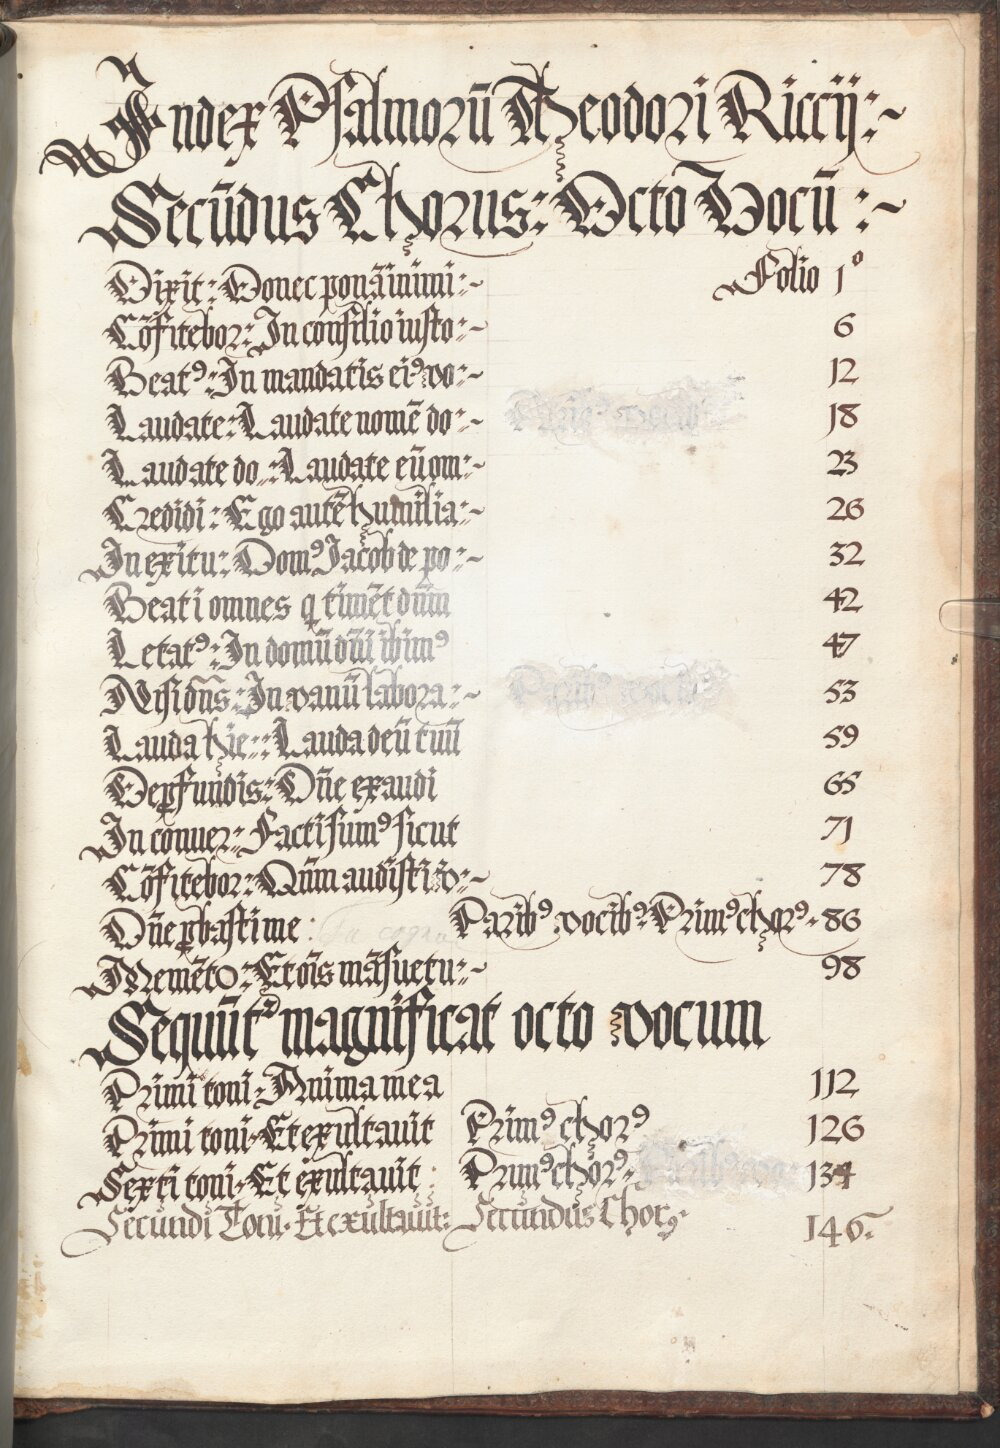 Index Psalmorũ Theodori Riccij:~
Secũdus Chorus: Octo Vocũ :~
Dixit: Donec ponã inimi:~ Folio 1º
Cõfitebor: In consilio iusto:~ 6
Beatꝰ: In mandatis eiꝰ vo:~ 12
Laudate: Laudate nomẽ do:~ 18
Laudate do: Laudate eũ om:~ 23
Credidi: Ego autẽ humilia:~ 26
In exitu: Domꝰ Jacob de po:~ 32
Beati omnes q timẽt dñm 42
Letatꝰ: In domũ dñi ibimꝰ 47
Nisi dñs: In vanũ labora:~ 53
Lauda hie:: Lauda deũ tuũ 59
De ꝓfundis: Dñe exaudi 65
In conuer: Facti sumꝰ sicut 71
Cõfitebor: Qm̃ audisti v:~ 78
Dñe ꝓbasti me: Paribꝰ vocibꝰ: Primꝰ chorꝰ 86
Memẽto: Et oĩs mãsuetu:~ 98
Sequũt magnificat octo vocum
Primi toni: Anima mea 112
Primi toni: Et exultauit Primꝰ chorꝰ 126
Sexti toni: Et exultauit: Primꝰ chorꝰ: 134
Secundi Toni: Et exultauit: Secundus Chorꝰ. 146.